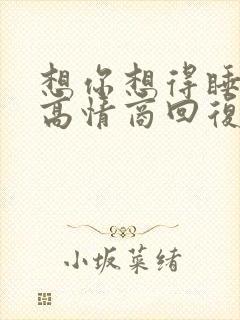 想你想得睡
高情商回復
小坂菜绪